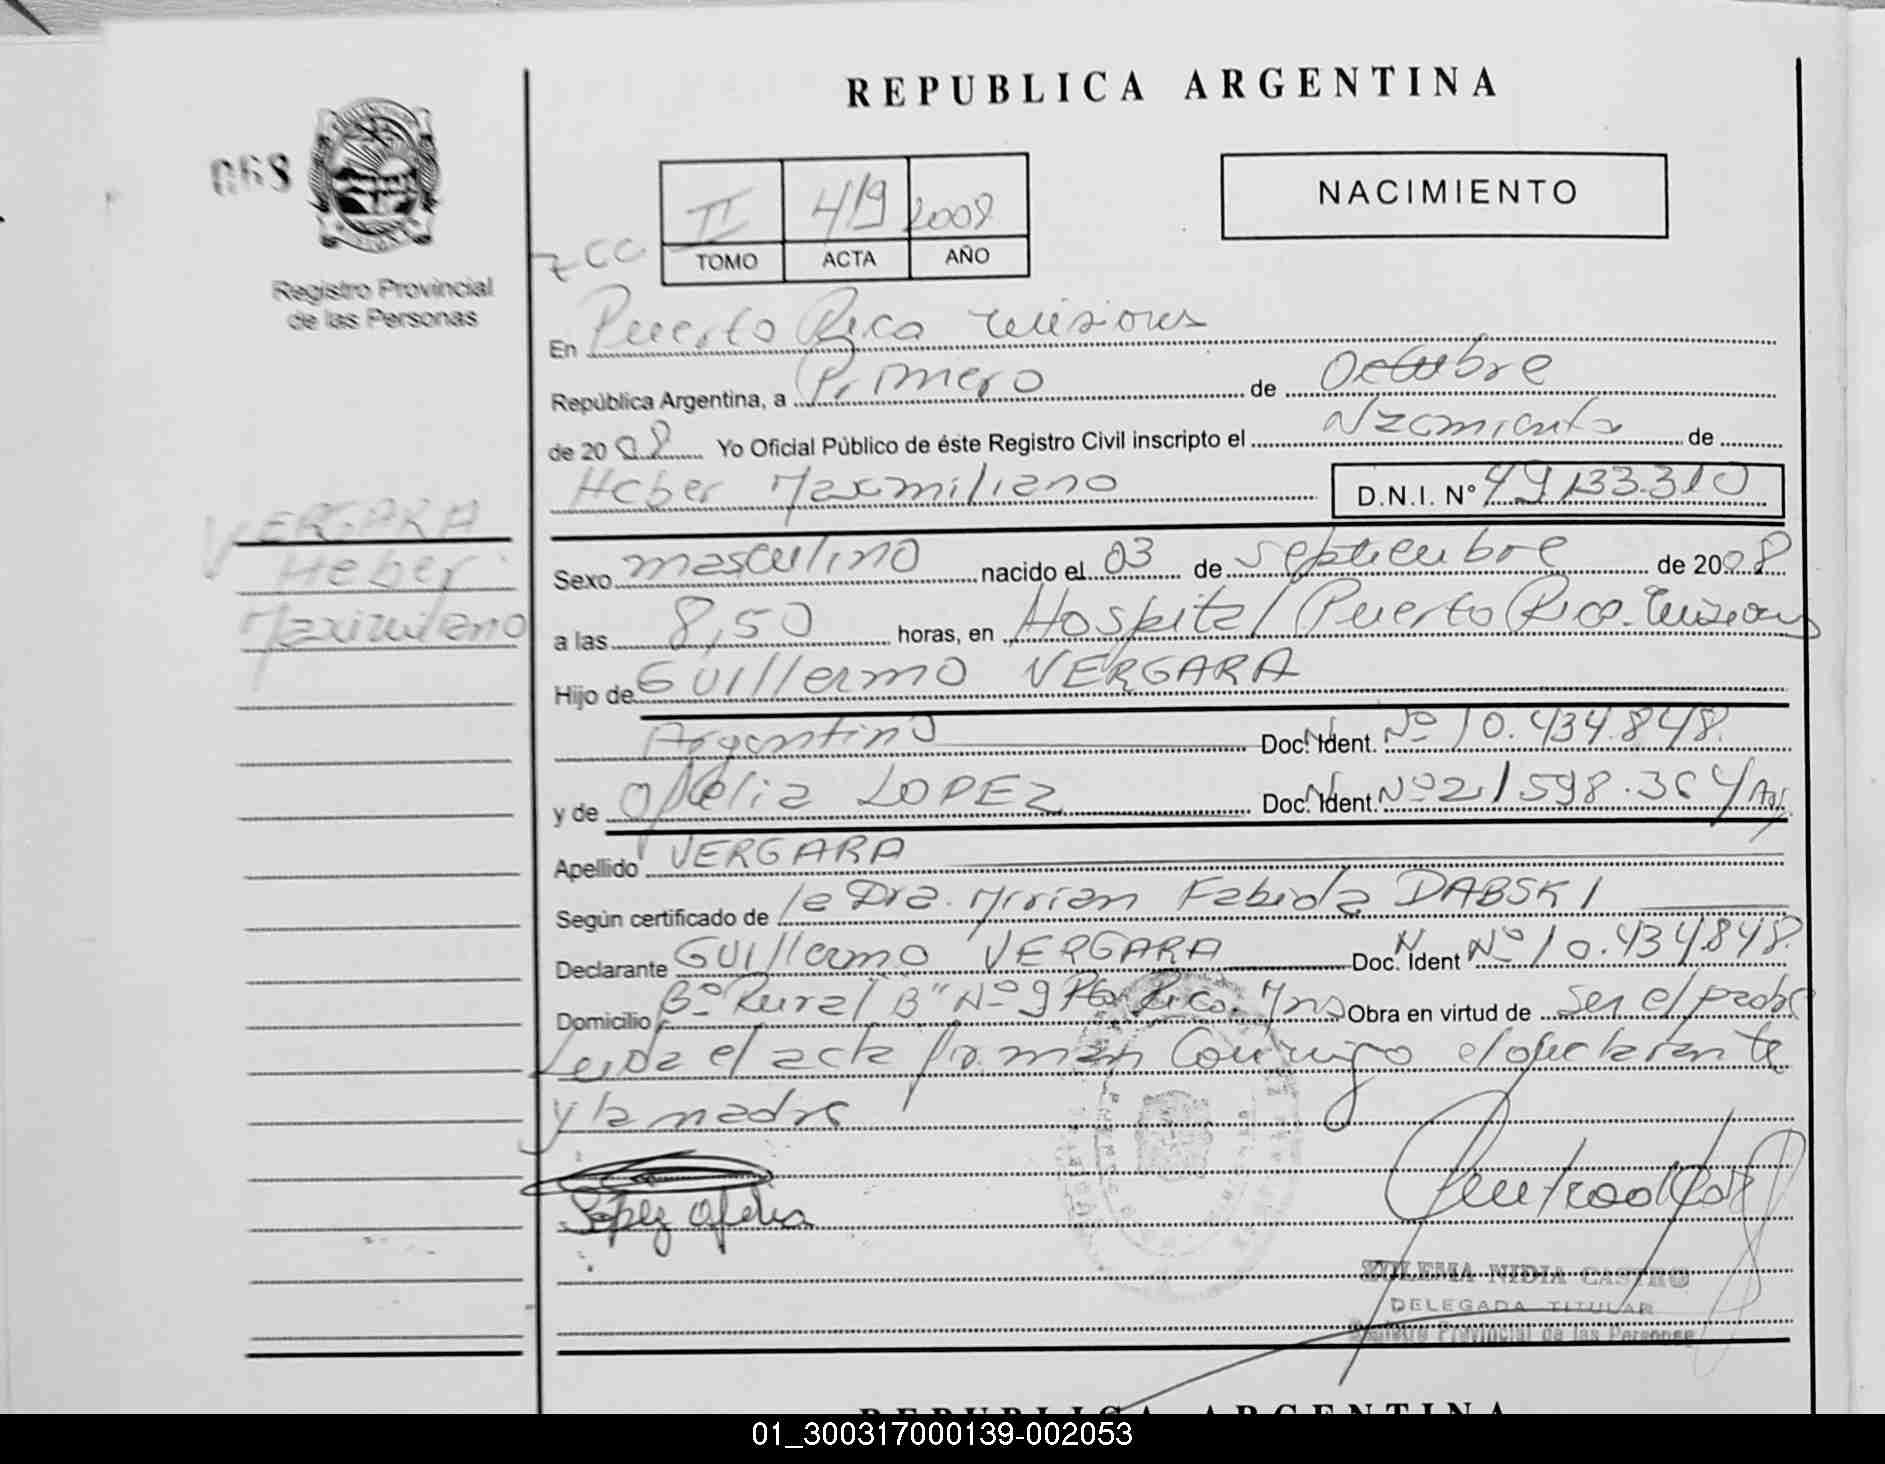 REPUBLICA ARGENTINA
068
NACIMIENTO
II 419 2008
TOMO ACTA AÑO
Registro Provincial
de las Personas
En Puerto Rico Misiones
República Argentina, a Primero de Octubre
de 2008 Yo Oficial Público de éste Registro Civil inscripto el Nacimiento de
Heber Maximiliano D.N.I. Nº 49.133.310
VERGARA
Heber
Maximiliano
Sexo masculino nacido el 03 de septiembre de 2008
a las 8,50 horas, en Hospital Puerto Rico. Misiones
Hijo de Guillermo VERGARA
Argentino Doc. N. Ident. Nº 10.434.848.
y de Ofelia LOPEZ Doc. N. Ident. Nº 21598.364 Arg.
Apellido VERGARA
Según certificado de la Dra. Mirian Fabiola DABSKI
Declarante Guillermo VERGARA Doc. N. Ident Nº 10.434848.
Domicilio Bº Rural B" Nº 9 Pto Rico. Mns Obra en virtud de ser el padre
Leida el acta firman Conmigo el declarante
y la madre
Lopez Ofelia
ZULEMA NIDIA CASTRO
DELEGADA TITULAR
Registro Provincial de las Personas
REPUBLICA ARGENTINA
01_300317000139-002053